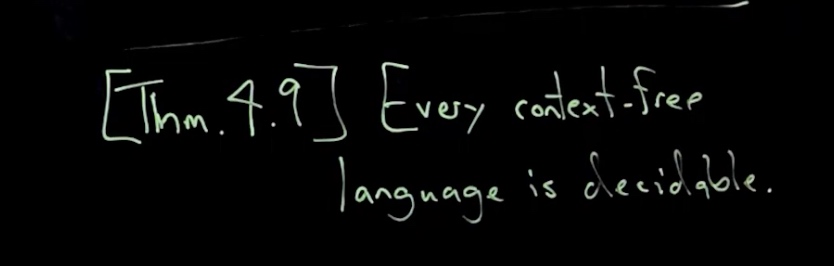 [Thm. 4.9] Every context-free
language is decidable.